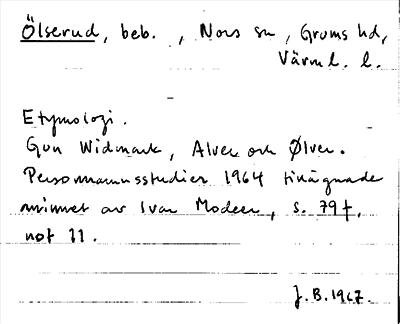 Ölserud, beb. , Nors sn, Grums hd,
Värml. l.
Etymologi.
Gun Widmark, Alver och Ølver.
Personnamnsstudier 1964 tillägnade
minnet av Ivar Modéer, s. 79 f,
not 11.
J.B. 1967.